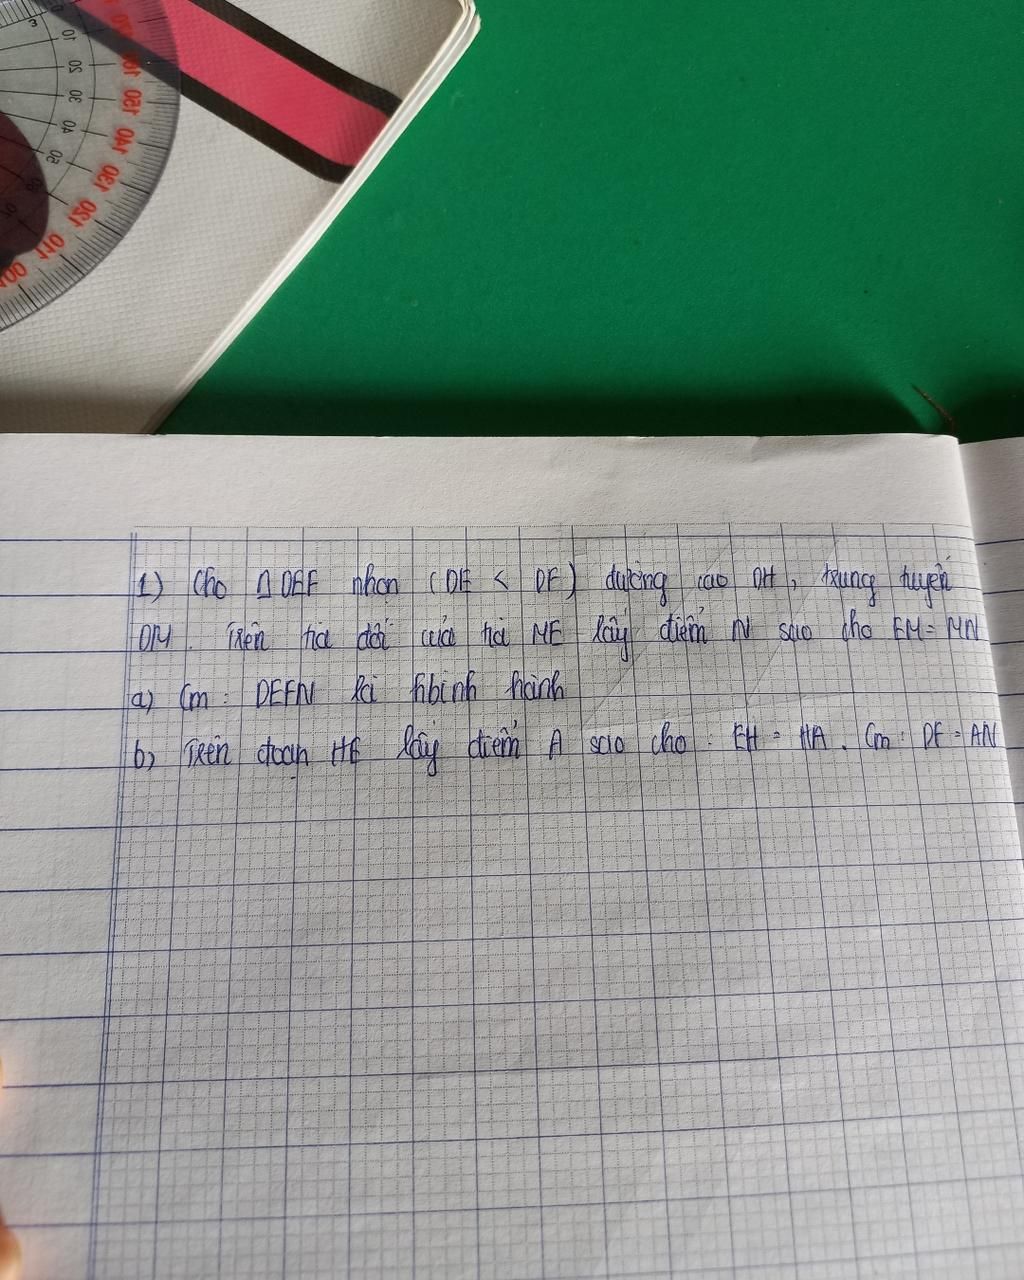 3 0 10 20 30 40 50
160 150 140 130 120 110 100
1) Cho Δ DEF nhọn (DE < DF) đường cao DH, trung tuyến
DM. Trên tia đối của tia ME lấy điểm N sao cho EM = MN
a) Cm: DEFN là hbình hành
b) Trên đoạn HF lấy điểm A sao cho: EH = HA. Cm: DF = AN